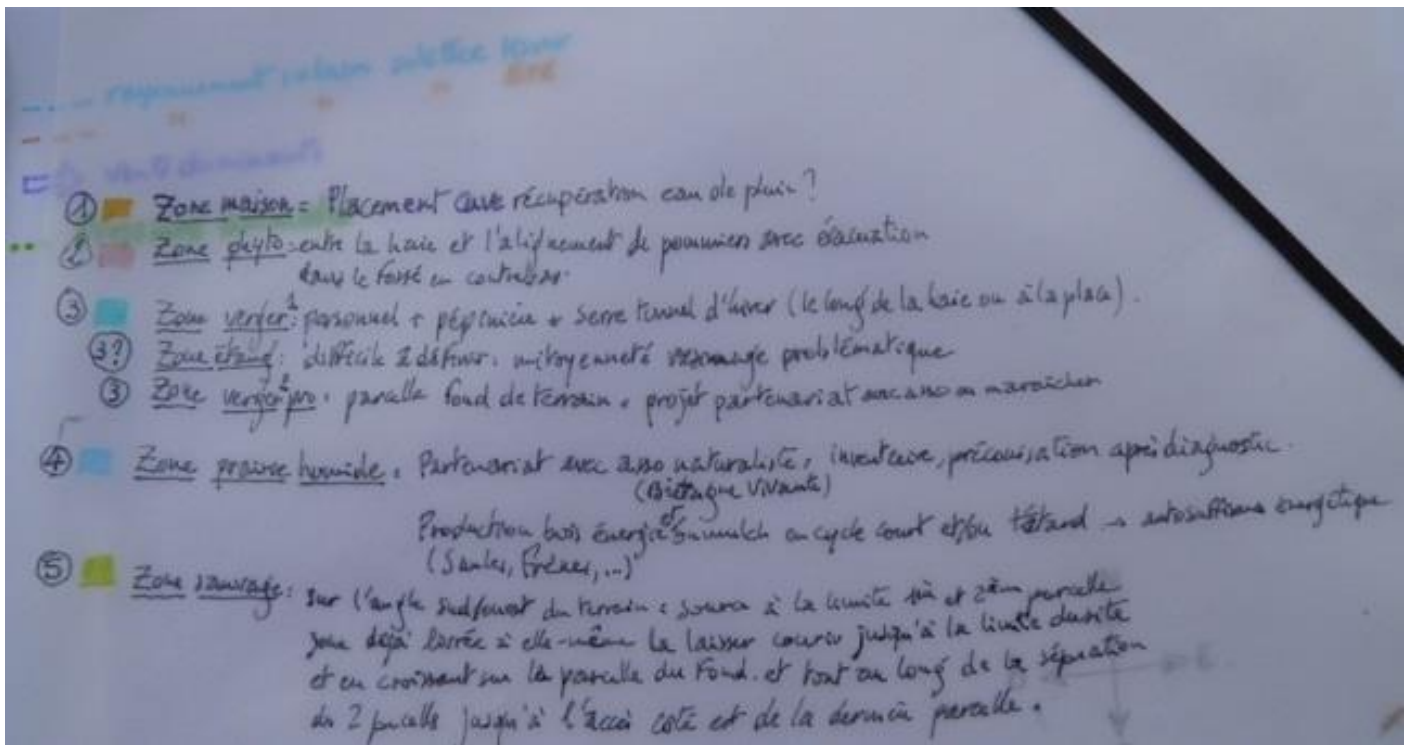 rayonnement solaire solstice hiver
" " " été
vents dominants
① Zone maison = Placement cuve récupération eau de pluie ?
② Zone phyto : entre la haie et l'alignement de pommiers avec évacuation
dans le fossé en contrebas.
③ Zone verger 1 : personnel + pépinière + serre tunnel d'hiver (le long de la haie ou à la place).
③? Zone étang : difficile à définir. mitoyenneté voisinage problématique
③ Zone verger 2 pro : parcelle fond de terrain. projet partenariat avec asso ou maraîcher
④ Zone prairie humide : Partenariat avec asso naturaliste, inventaire, préconisation après diagnostic.
(Bretagne Vivante)
Production bois énergie et/ou mulch en cycle court et/ou têtard → autosuffisance énergétique
(Saules, Frênes, ...)
⑤ Zone sauvage : sur l'angle sud/ouest du terrain : source à la limite et 2ème parcelle
zone déjà livrée à elle-même la laisser courir jusqu'à la limite du site
et en croissant sur la parcelle du Fond. et tout au long de la séparation
des 2 parcelles jusqu'à l'accès coté est de la dernière parcelle.
E